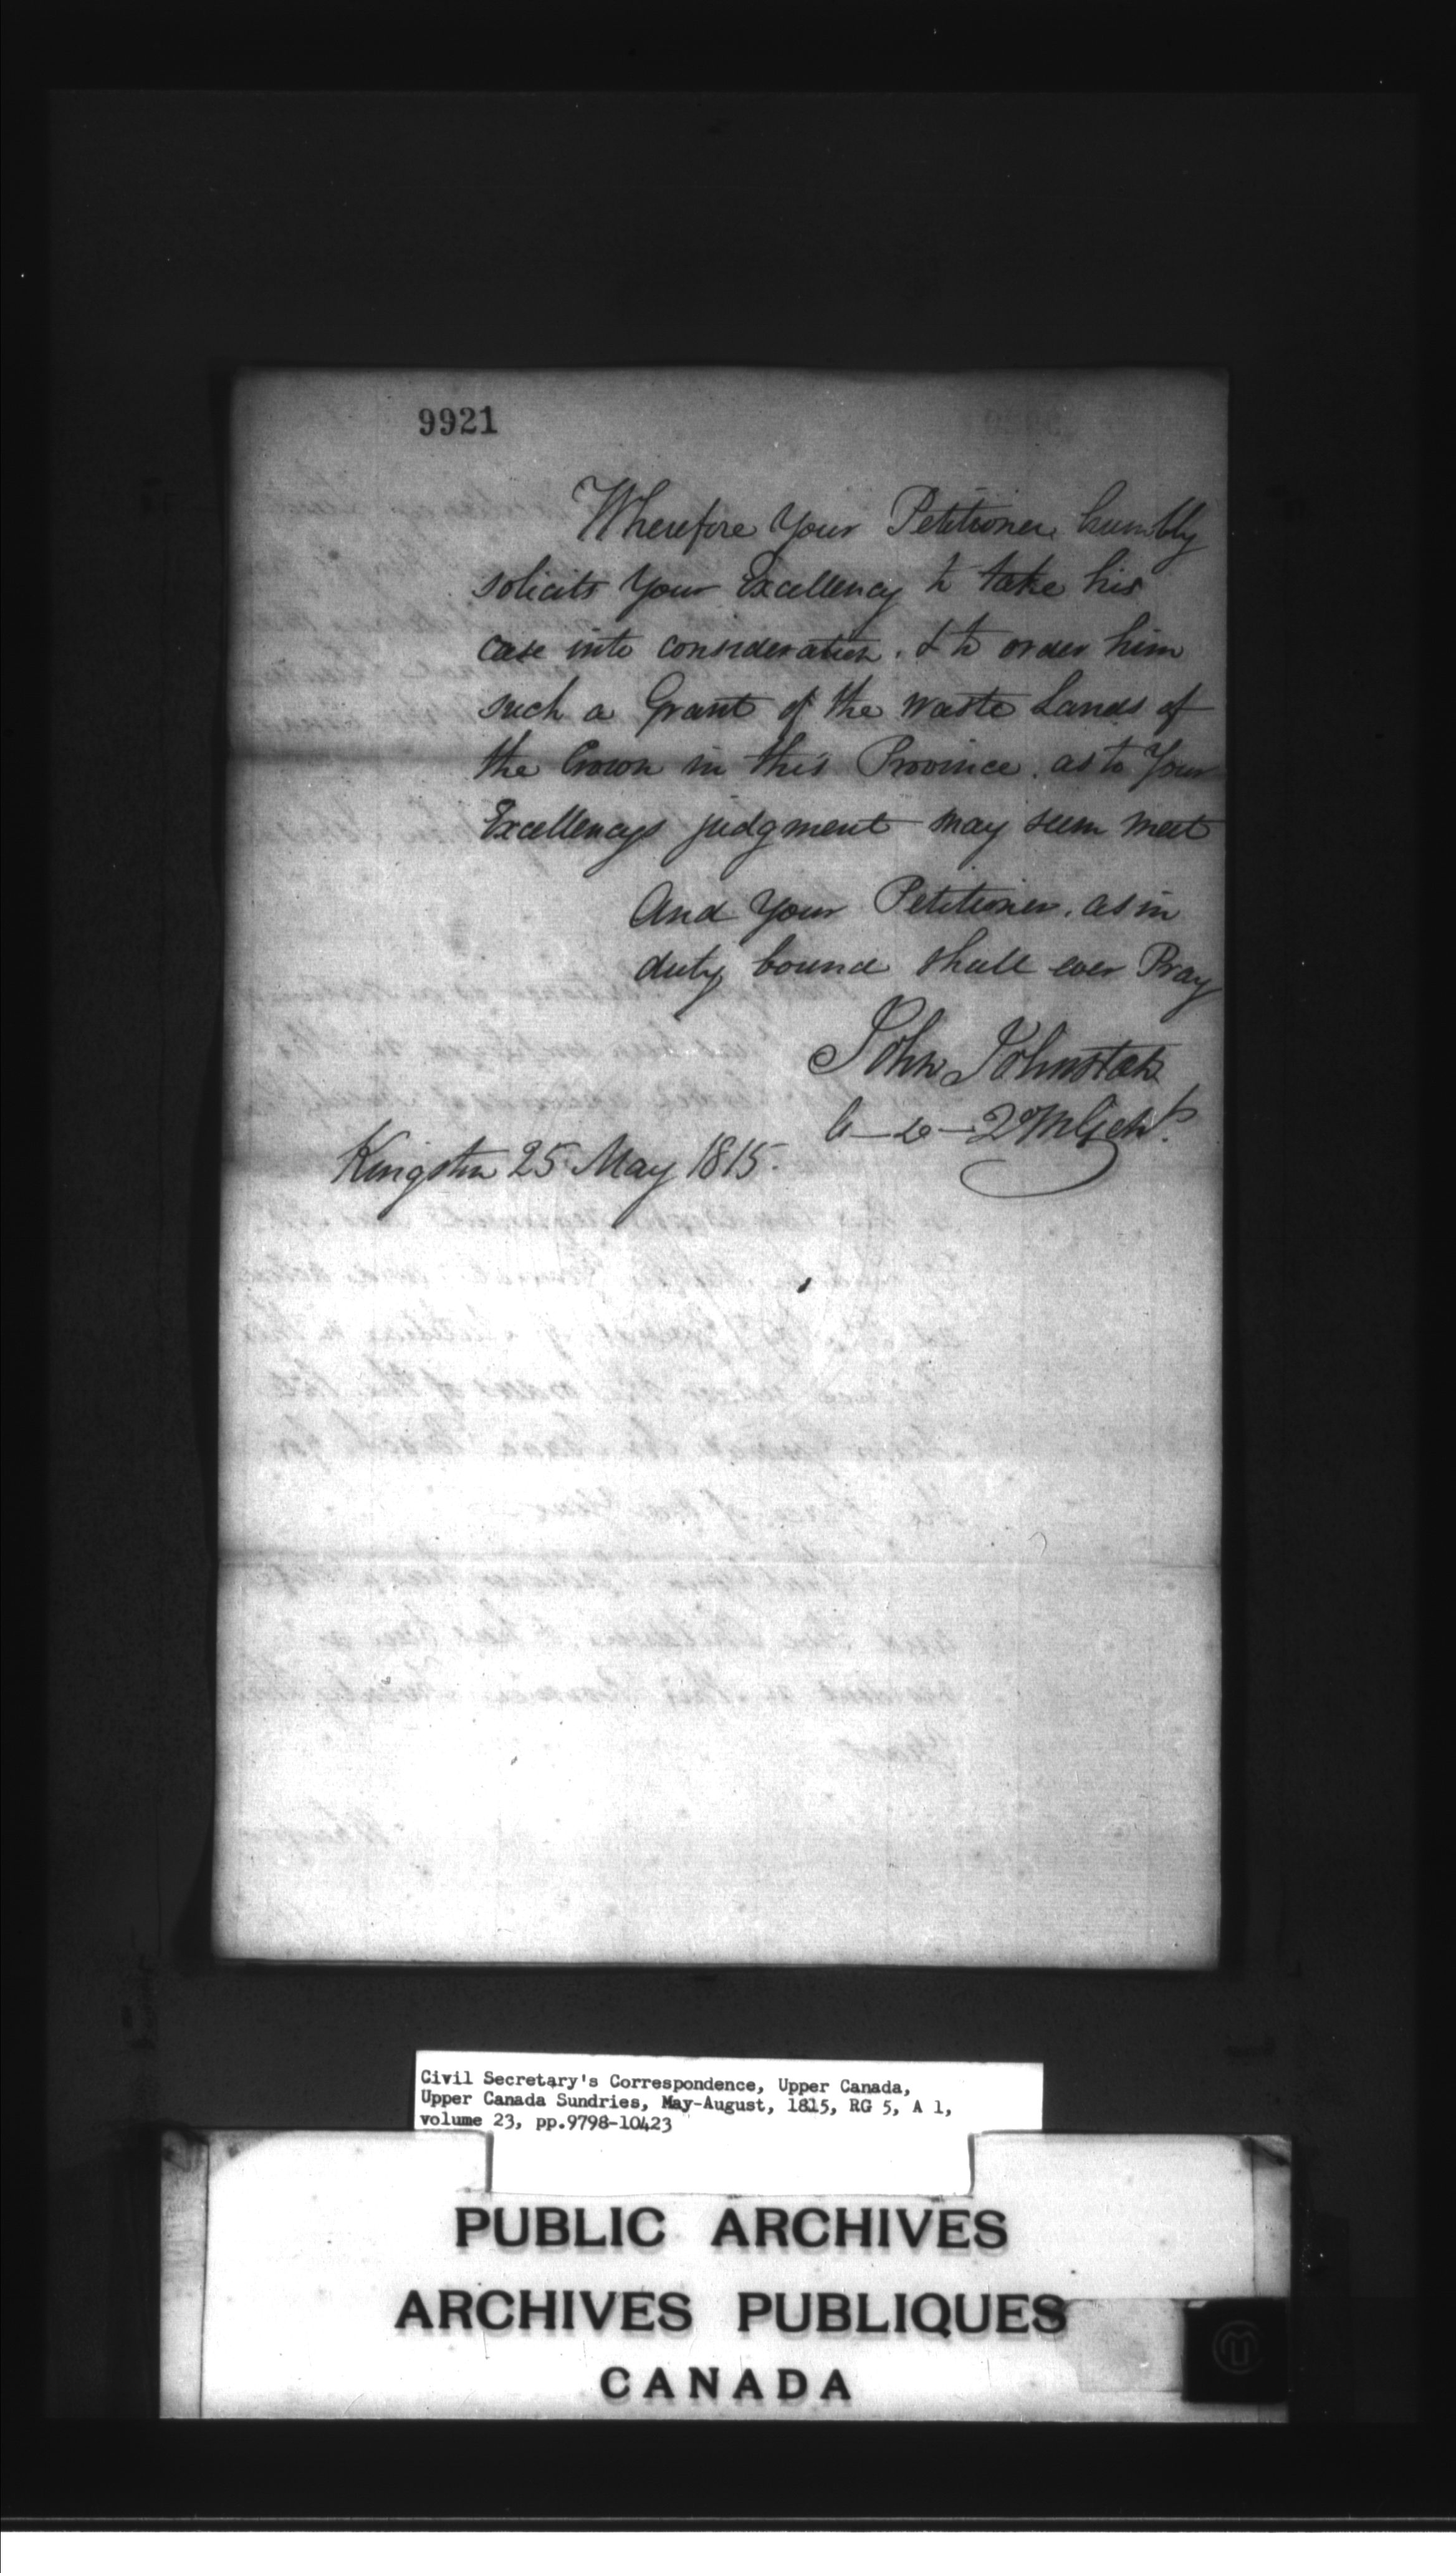 9921
Wherefore Your Petitioner humbly
solicits Your Excellency to take his
case into consideration. & to order him
such a Grant of the waste Lands of
the Crown in this Province. as to Your
Excellencys judgment may seem meet
And Your Petitioner. as in
duty bound shall ever Pray
John Johnston
Kingston 25 May 1815.
Civil Secretary's Correspondence, Upper Canada,
Upper Canada Sundries, May-August, 1815, RG 5, A 1,
volume 23, pp.9798-10423
PUBLIC ARCHIVES
ARCHIVES PUBLIQUES
CANADA